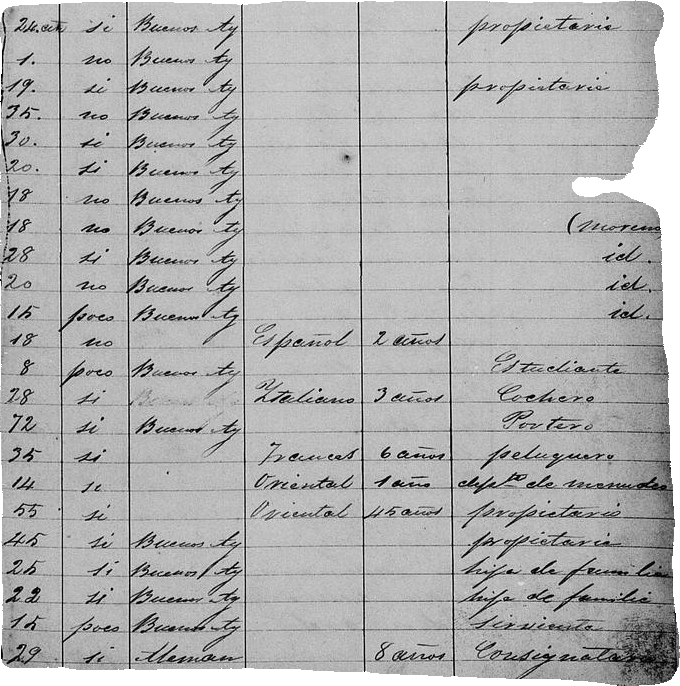 24 si Buenos Ay propietario
1. no Buenos Ay
19. si Buenos Ay propietario
35. no Buenos Ay
30. si Buenos Ay
20. si Buenos Ay
18 no Buenos Ay
18 no Buenos Ay (moreno
28 si Buenos Ay id.
20 no Buenos Ay id.
15 poco Buenos Ay id.
18 no Español 2 años
8 poco Buenos Ay Estudiante
28 si Italiano 3 años Cochero
72 si Buenos Ay Portero
35 si Frances 6 años peluquero
14 si Oriental 1 año depto de menudeo
55 si Oriental 45 años propietario
45 si Buenos Ay propietaria
25 si Buenos Ay hija de familia
22 si Buenos Ay hija de familia
15 poco Buenos Ay sirvienta
29 si Aleman 8 años Consignatario